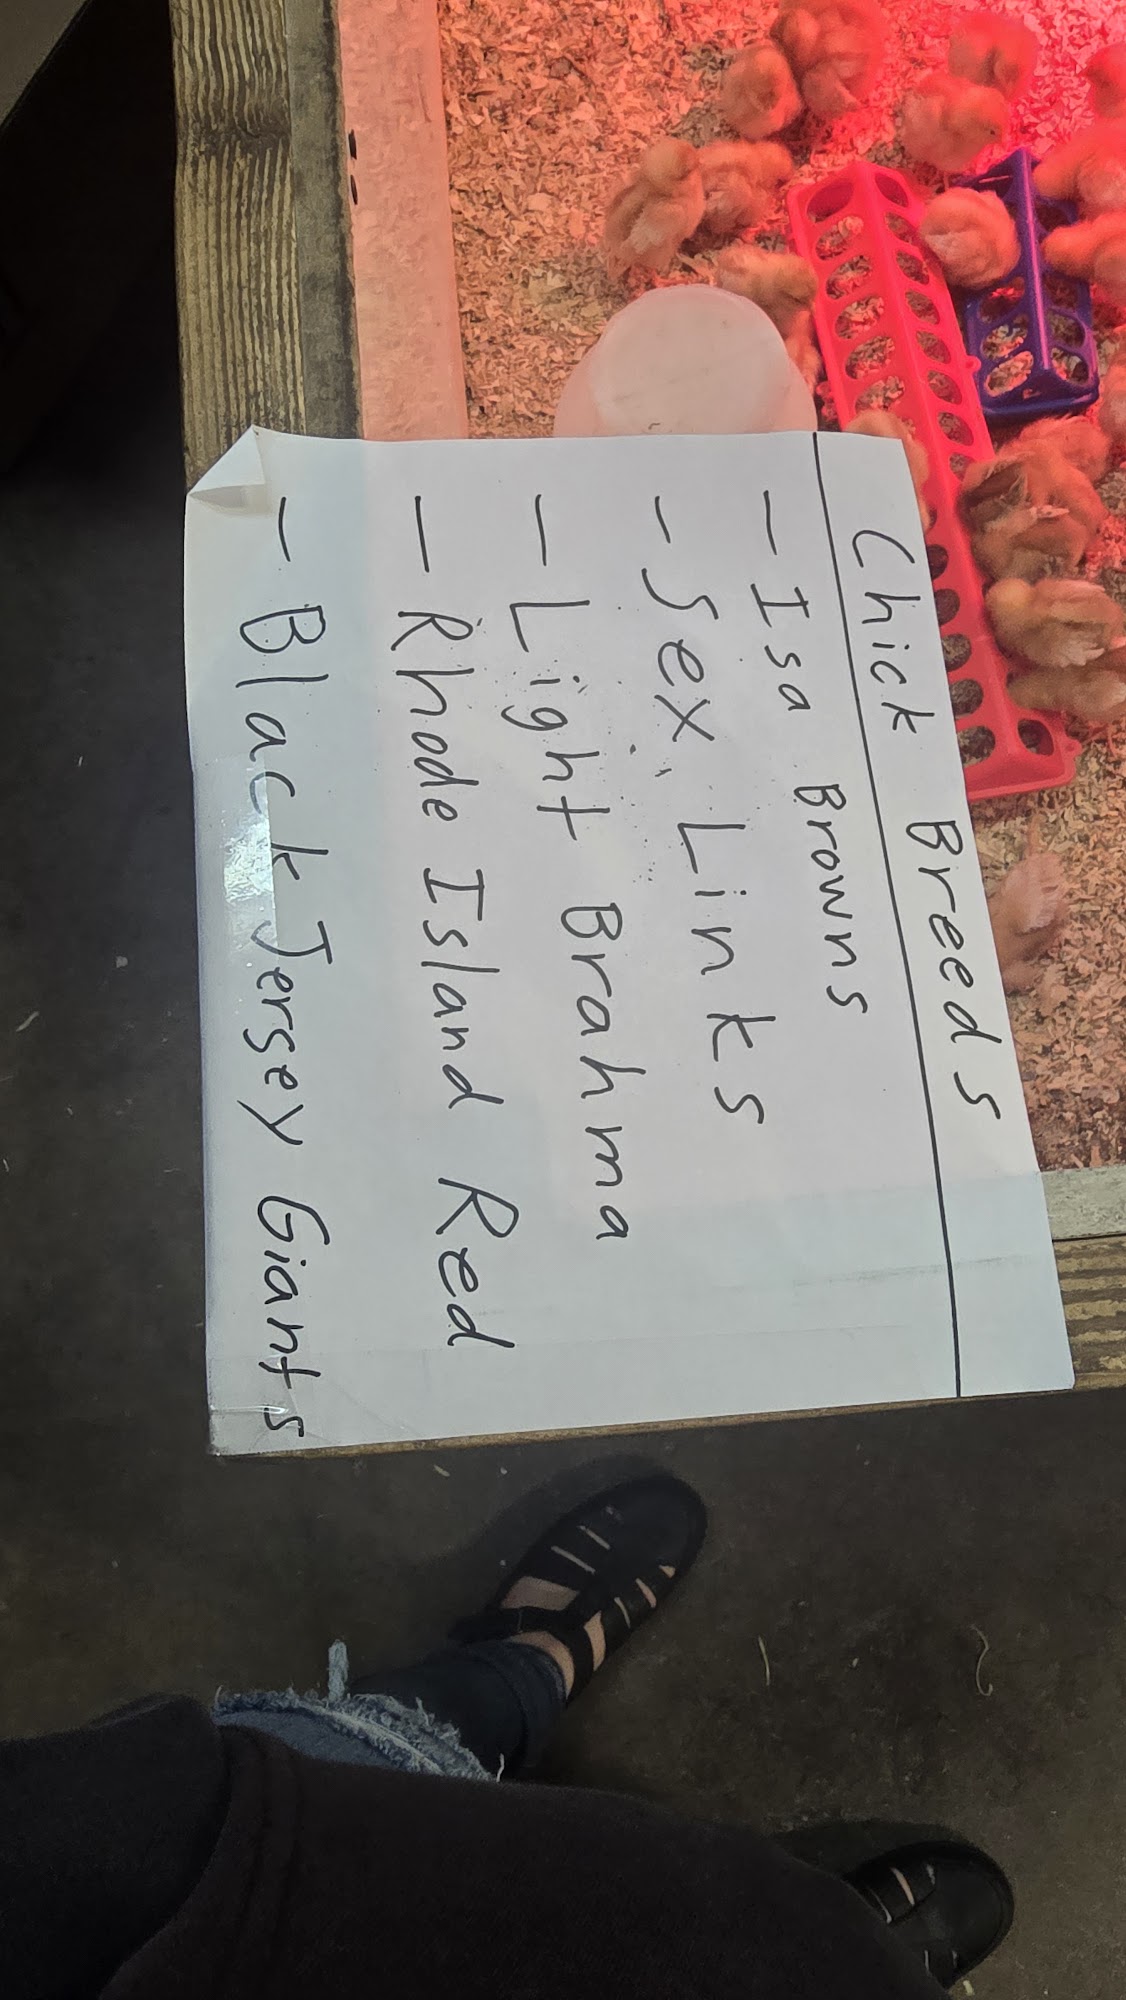 Chick Breeds
- Isa Browns
- Sex Links
- Light Brahma
- Rhode Island Red
- Black Jersey Giants